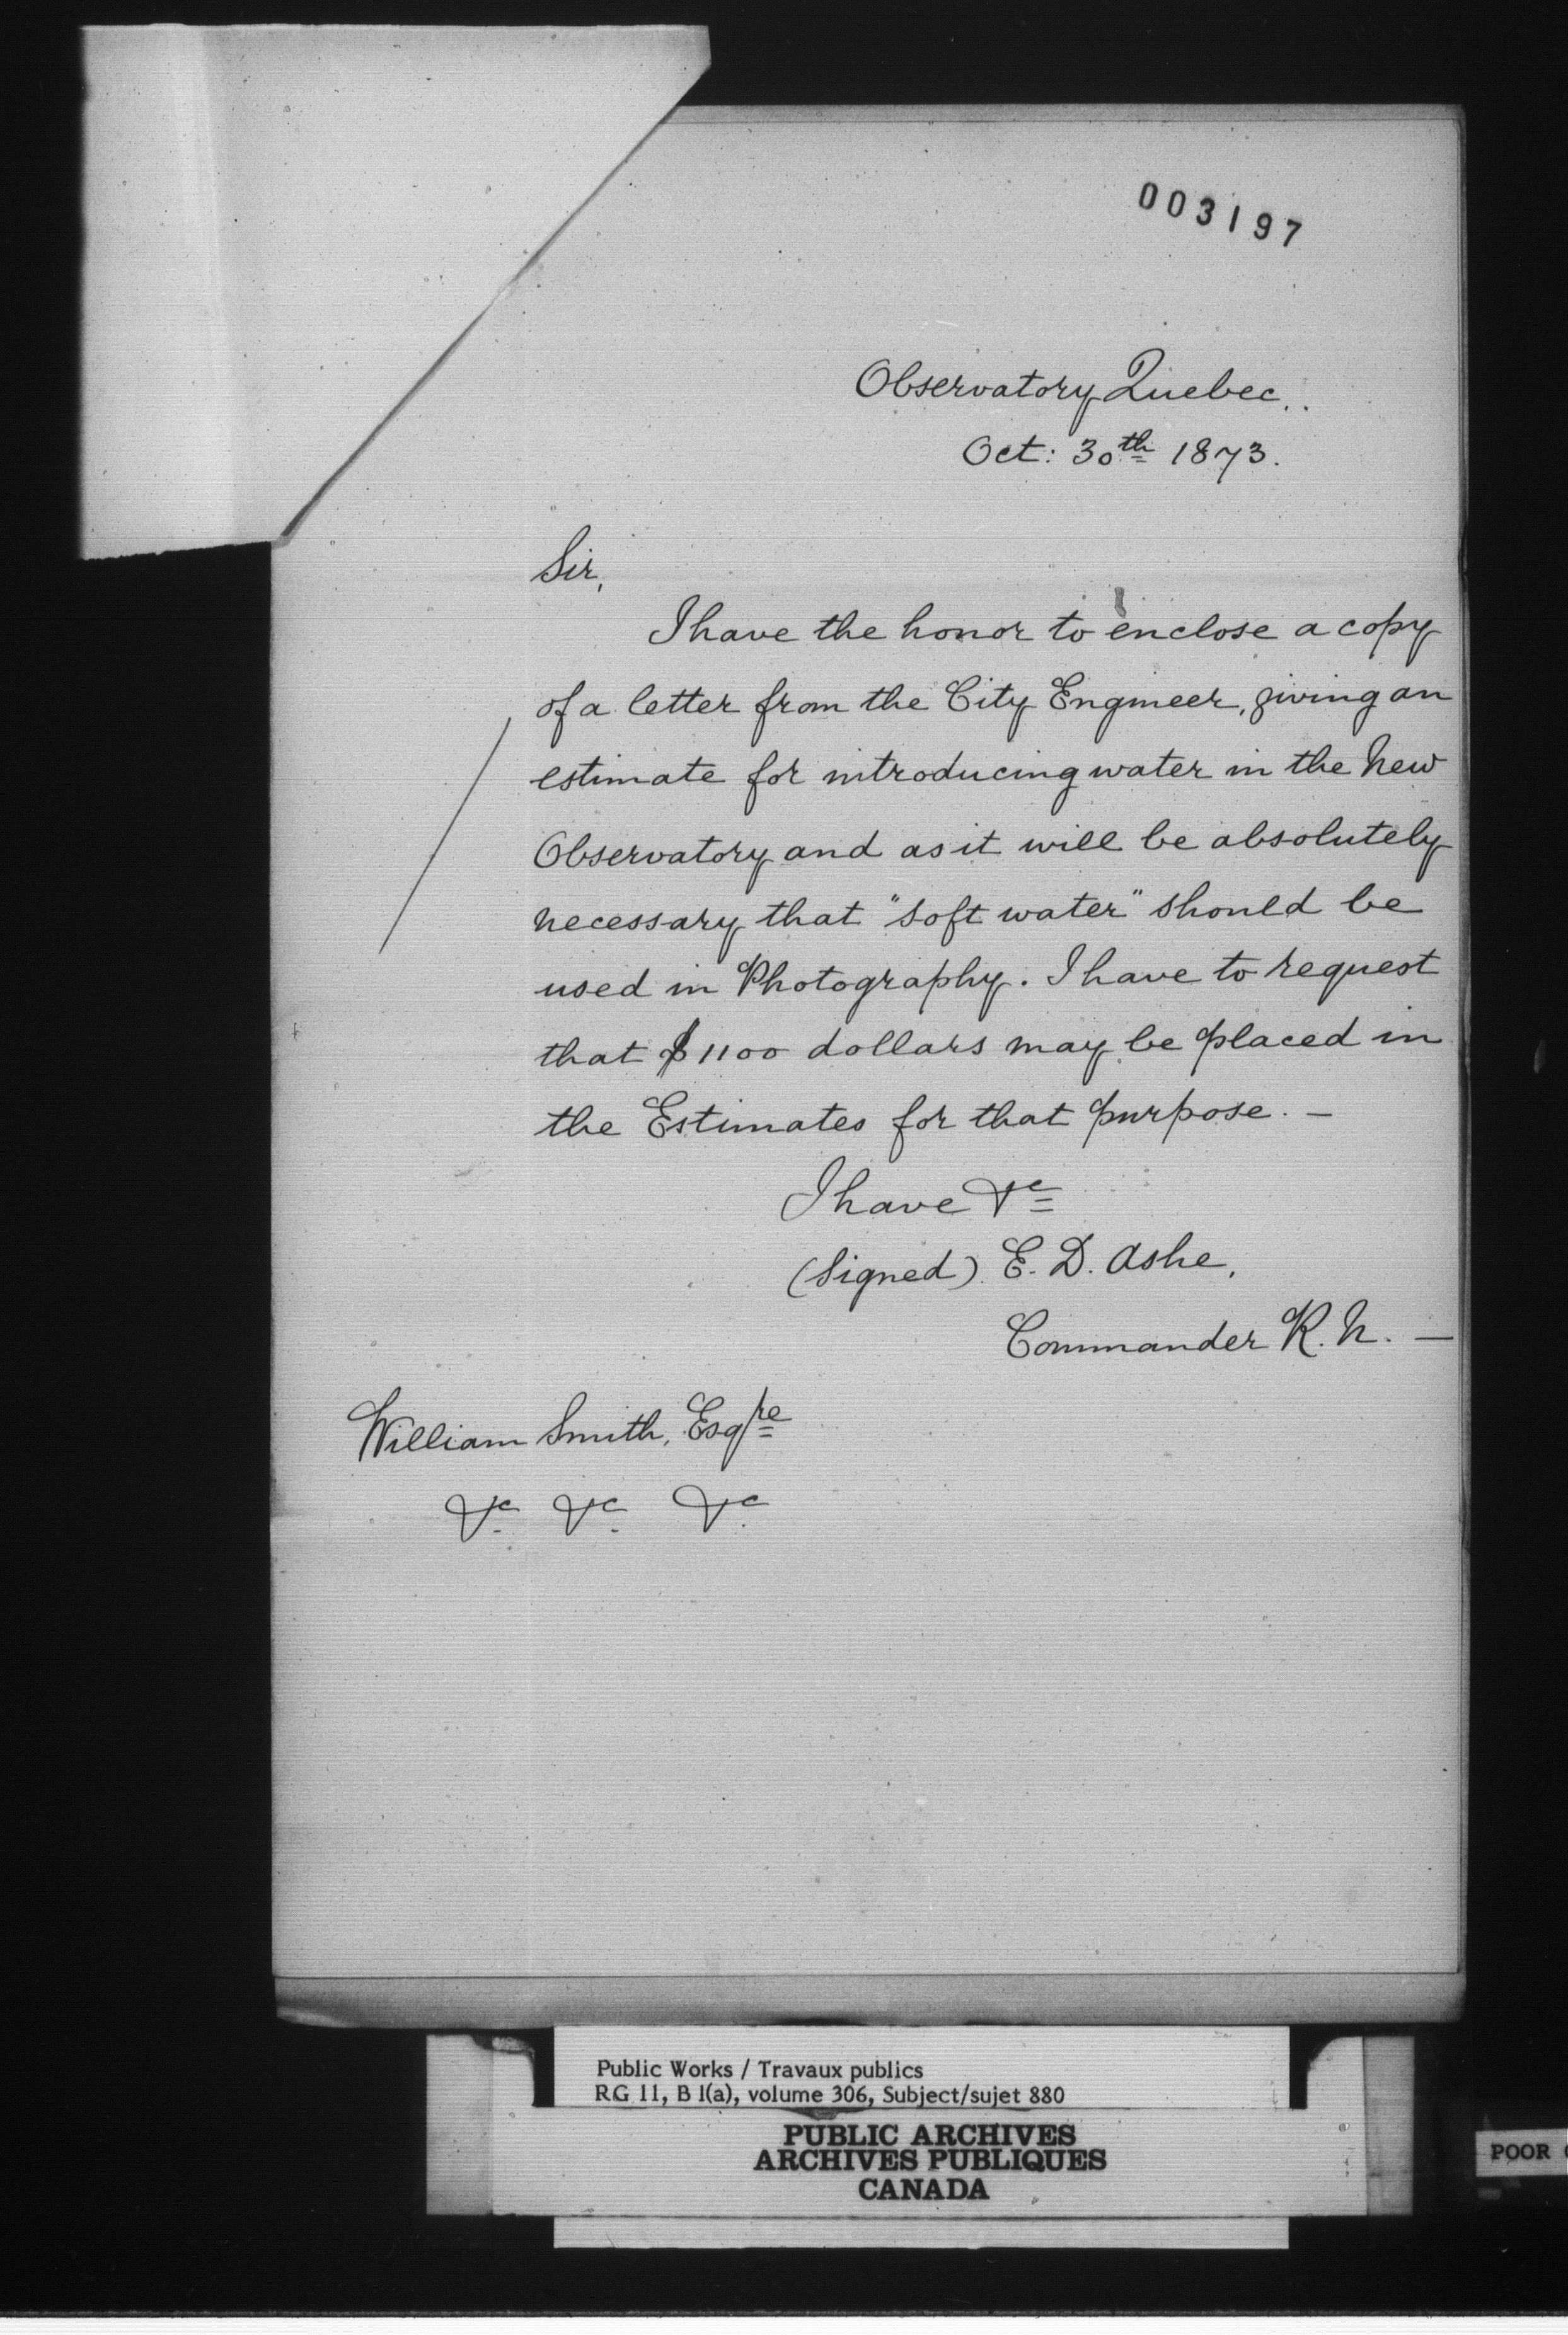 003197
Observatory Quebec.
Oct: 30th 1873.
Sir,
I have the honor to enclose a copy
of a letter from the City Engineer, giving an
estimate for introducing water in the New
Observatory and as it will be absolutely
necessary that "soft water" should be
used in Photography. I have to request
that $1100 dollars may be placed in
the Estimates for that purpose. —
I have &c
(Signed) E. D. Ashe,
Commander R. N. —
William Smith, Esqre
&c &c &c
Public Works / Travaux publics
RG 11, B 1(a), volume 306, Subject/sujet 880
PUBLIC ARCHIVES
ARCHIVES PUBLIQUES
CANADA
POOR